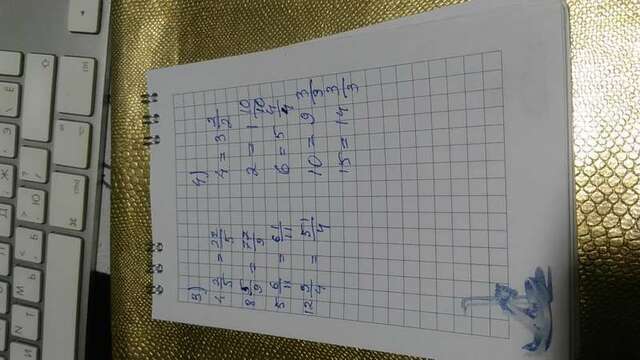 3)
4 2/5 = 22/5
8 5/9 = 77/9
5 6/11 = 61/11
12 3/4 = 51/4
4)
4 = 3 2/2
2 = 1 10/10
6 = 5 4/4
10 = 9 3/3
15 = 14 3/3